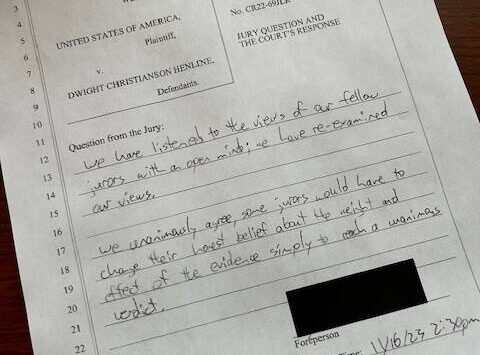 3
4
5
UNITED STATES OF AMERICA,
No. CR22-69JLR
6
Plaintiff,
JURY QUESTION AND
7
v.
THE COURT'S RESPONSE
8
DWIGHT CHRISTIANSON HENLINE,
9
Defendants.
10
11
Question from the Jury:
12
We have listened to the views of our fellow
13
jurors with an open mind; we have re-examined
14
our views.
15
16
17
We unanimously agree, some jurors would have to
18
change their honest belief about the weight and
19
effect of the evidence simply to reach a unanimous
20
verdict.
21
22
Foreperson
11/16/23 2:30pm